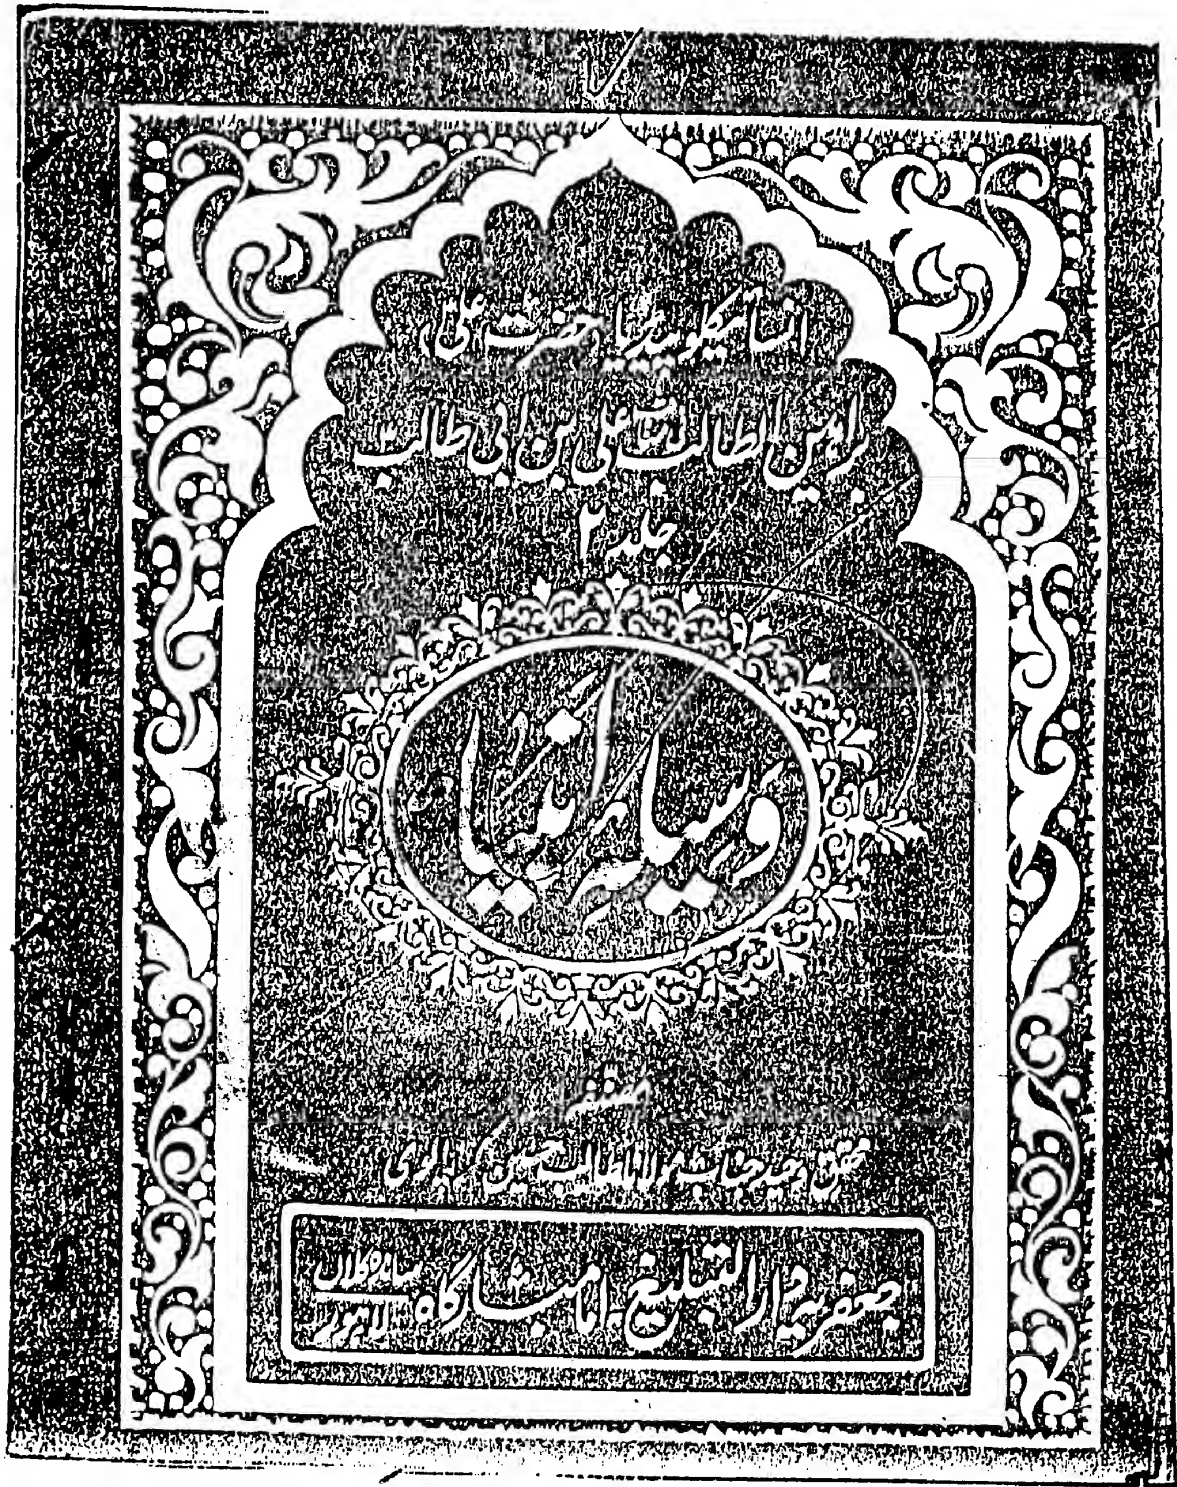 انسائیکلوپیڈیا حضرت علیؑ
براہین المطالب مناقب علی بن ابی طالبؑ
جلد ۲
وسیلہ انبیاء
محقق وحید جناب مولانا طالب حسین کرپالوی
جعفریہ دارالتبلیغ امام بارگاہ ساندہ کلاں
لاہور